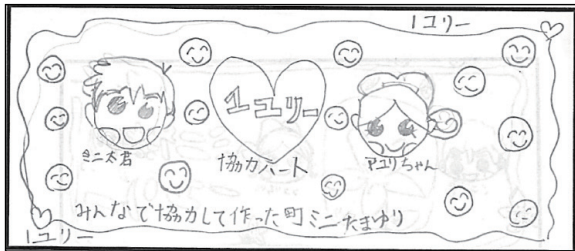 1ユリー
1ユリー
きニ太君
協力ハート
アユリちゃん
みんなで協力して作った町ミニたまゆり
1ユリー